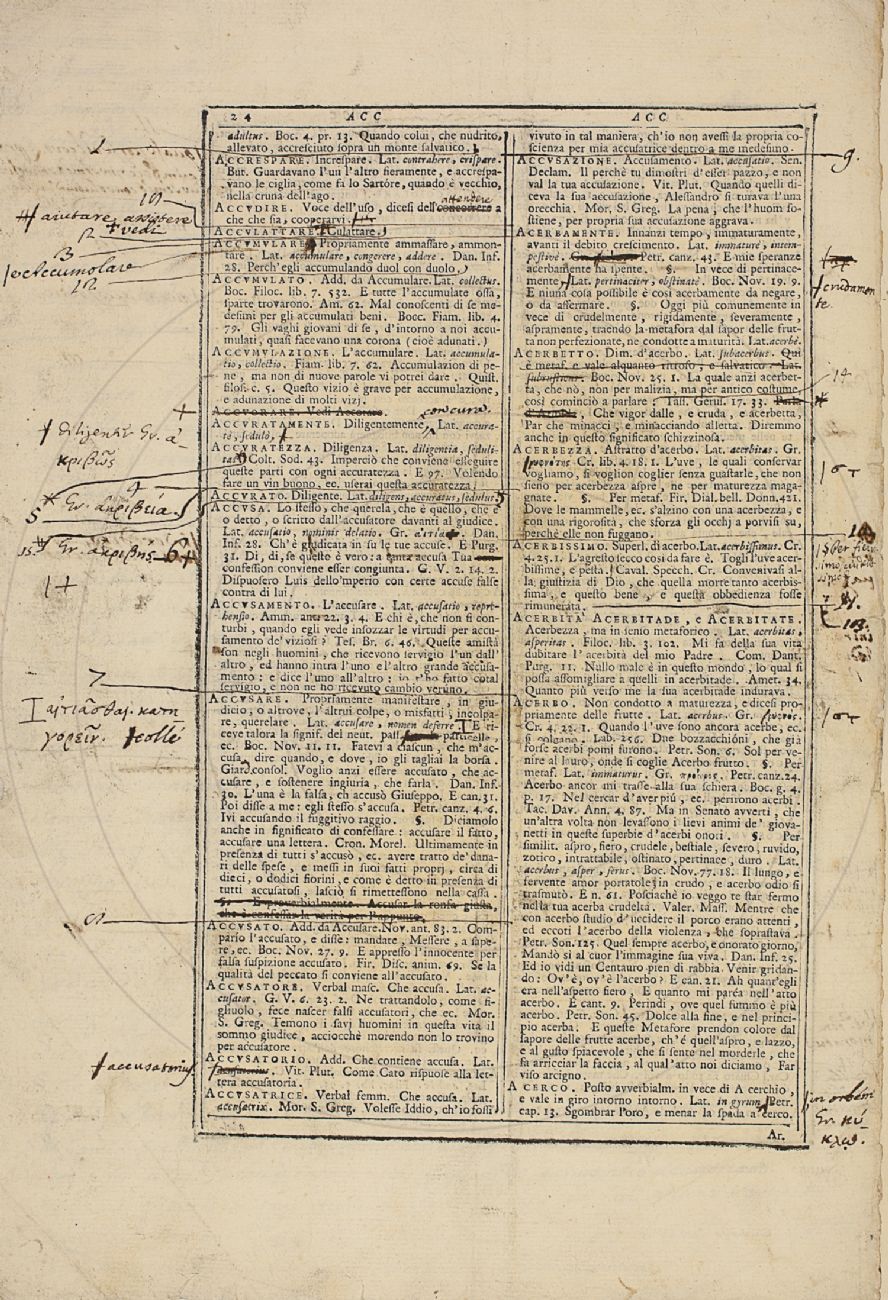 24 ACC ACC
adultus. Boc. 4. pr. 13. Quando colui, che nudrito,
allevato, accresciuto sopra un monte salvatico.
ACCRESPARE. Increspare. Lat. contrahere, crispare.
But. Guardavano l'un l'altro fieramente, e accrespa-
vano le ciglia, come fa lo Sartóre, quando è vecchio,
nella cruna dell'ago.
attendere
ACCVDIRE. Voce dell'uso, dicesi dell'concorrere a
che che sia, cooperarvi.
ACCVLATTARE. Culattare.
ACCVMVLARE. Propriamente ammassare, ammon-
tare. Lat. accumulare, congerere, addere. Dan. Inf.
28. Perch'egli accumulando duol con duolo,
ACCVMVLATO. Add. da Accumulare. Lat. collectus.
Boc. Filoc. lib. 7. 532. E tutte l'accumulate ossa,
sparte trovarono. Am. 62. Mal conoscenti di se me-
desimi per gli accumulati beni. Bocc. Fiam. lib. 4.
79. Gli vaghi giovani di se, d'intorno a noi accu-
mulati, quasi facevano una corona (cioè adunati.)
ACCVMVLAZIONE. L'accumulare. Lat. accumula-
tio, collectio. Fiam. lib. 7. 62. Accumulazion di pe-
ne, ma non di nuove parole vi potrei dare. Quist.
filos. c. 5. Questo vizio è grave per accumulazione,
e adunazione di molti vizj.
ACCVORARE. Vedi Accorare.
con cura.
ACCVRATAMENTE. Diligentemente, Lat. accura-
tè, sedulò.
ACCVRATEZZA. Diligenza. Lat. diligentia, seduli-
tas. Colt. Sod. 43. Imperciò che conviene eseguire
queste parti con ogni accuratezza. E 97. Volendo
fare un vin buono, ec. userai questa accuratezza.
ACCVRATO. Diligente. Lat. diligens, accuratus, sedulus.
ACCVSA. Lo stesso, che querela, che è quello, che è
o detto, o scritto dall'accusatore davanti al giudice.
Lat. accusatio, nominis delatio. Gr. αἰτία. Dan.
Inf. 28. Ch'è giudicata in su le tue accuse. E Purg.
31. Di, di, se questo è vero: a tanta accusa Tua
confession conviene esser congiunta. G. V. 2. 14. 2.
Dispuosero Luis dello'mperio con certe accuse false
contra di lui.
ACCVSAMENTO. L'accusare. Lat. accusatio, repre-
hensio. Amm. ant. 22. 3. 4. E chi è, che non si con-
turbi, quando egli vede insozzar le virtudi per accu-
samento de' viziosi? Tes. Br. 6. 46. Queste amistà
son negli huomini, che ricevono servigio l'un dall'
altro, ed hanno intra l'uno e l'altro grande accusa-
mento: e dice l'uno all'altro: io t'ho fatto cotal
servigio, e non ne ho ricevuto cambio veruno.
ACCVSARE. Propriamente manifestare, in giu-
dicio, o altrove, l'altrui colpe, o misfatti, incolpa-
re, querelare. Lat. accusare, nomen deferre. E ri-
ceve talora la signif. del neut. pass. particelle,
ec. Boc. Nov. 11. 11. Fatevi a ciascun, che m'ac-
cusa, dire quando, e dove, io gli tagliai la borsa.
Giard. consol. Voglio anzi essere accusato, che ac-
cusare, e sostenere ingiuria, che farla. Dan. Inf.
30. L'una è la falsa, ch accusò Giuseppo. E can. 31.
Poi disse a me: egli stesso s'accusa. Petr. canz. 4. 6.
Ivi accusando il fuggitivo raggio. §. Diciamolo
anche in significato di confessare: accusare il fatto,
accusare una lettera. Cron. Morel. Ultimamente in
presenza di tutti s'accusò, ec. avere tratto de' dana-
ri delle spese, e messi in suoi fatti proprj, circa di
dieci, o dodici fiorini, e come è detto in presenza di
tutti accusatosi, lasciò si rimettessono nella cassa.
§. E proverbialmente. Accusar la ronfa giusta,
che è confessar la verità per l'appunto.
ACCVSATO. Add. da Accusare. Nov. ant. 83. 2. Com-
pario l'accusato, e disse: mandate, Messere, a sape-
re, ec. Boc. Nov. 27. 9. E appresso l'innocente per
falsa suspizione accusato. Fir. Disc. anim. 69. Se la
qualità del peccato si conviene all'accusato.
ACCVSATORE. Verbal masc. Che accusa. Lat. ac-
cusator. G. V. 6. 23. 2. Ne trattandolo, come fi-
gliuolo, fece nascer falsi accusatori, che ec. Mor.
S. Greg. Temono i savj huomini in questa vita il
sommo giudice, acciocchè morendo non lo trovino
per accusatore.
ACCVSATORIO. Add. Che contiene accusa. Lat.
accusatorius. Vit. Plut. Come Cato rispuose alla let-
tera accusatoria.
ACCVSATRICE. Verbal femm. Che accusa. Lat.
accusatrix. Mor. S. Greg. Volesse Iddio, ch'io fossi
vivuto in tal maniera, ch'io non avessi la propria co-
scienza per mia accusatrice dentro a me medesimo.
ACCVSAZIONE. Accusamento. Lat. accusatio. Sen.
Declam. Il perchè tu dimostri d'esser pazzo, e non
val la tua accusazione. Vit. Plut. Quando quelli di-
ceva la sua accusazione, Alessandro si turava l'una
orecchia. Mor. S. Greg. La pena, che l'huom so-
stiene, per propria sua accusazione aggrava.
ACERBAMENTE. Innanzi tempo, immaturamente,
avanti il debito crescimento. Lat. immaturè, intem-
pestivè. Petr. canz. 43. E mie speranze
acerbamente ha spente. §. In vece di pertinace-
mente, Lat. pertinaciter, obstinatè. Boc. Nov. 19. 9.
E niuna cosa possibile è così acerbamente da negare,
o da affermare. §. Oggi più comunemente in
vece di crudelmente, rigidamente, severamente,
aspramente, traendo la metafora dal sapor delle frut-
ta non perfezionate, ne condotte a maturità. Lat. acerbè.
ACERBETTO. Dim. d'acerbo. Lat. subacerbus. Qui
è metaf. e vale alquanto ritroso, e salvatico. Lat.
Boc. Nov. 25. 1. La quale anzi acerbet-
ta, che nò, non per malizia, ma per antico costume,
così cominciò a parlare: Tass. Gerus. 17. 33. Parla
d'Armida, Che vigor dalle, e cruda, e acerbetta,
Par che minacci, e minacciando alletta. Diremmo
anche in questo significato schizzinosa.
ACERBEZZA. Astratto d'acerbo. Lat. acerbitas. Gr.
Cr. lib. 4. 18. 1. L'uve, le quali conservar
vogliamo, si voglion coglier senza guastarle, che non
sieno per acerbezza aspre, ne per maturezza maga-
gnate. §. Per metaf. Fir. Dial. bell. Donn. 421.
Dove le mammelle, ec. s'alzino con una acerbezza, e
con una rigorosità, che sforza gli occhj a porvisi su,
perchè elle non fuggano.
ACERBISSIMO. Superl. di acerbo. Lat. acerbissimus. Cr.
4. 25. 1. L'agresto secco così da fare è. Togli l'uve acer-
bissime, e pesta. Caval. Specch. Cr. Convenivasi al-
la giustizia di Dio, che quella morte tanto acerbis-
sima, e questo bene, e questa obbedienza fosse
rimunerata.
ACERBITÀ ACERBITADE, e ACERBITATE.
Acerbezza, ma in senso metaforico. Lat. acerbitas,
asperitas. Filoc. lib. 3. 102. Mi fa della sua vita
dubitare l'acerbità del mio Padre. Com. Dant.
Purg. 11. Nullo male è in questo mondo, lo qual si
possa assomigliare a quelli in acerbitade. Amet. 34.
Quanto più verso me la sua acerbitade indurava.
ACERBO. Non condotto a maturezza, e dicesi pro-
priamente delle frutte. Lat. acerbus. Gr.
Cr. 4. 22. 1. Quando l'uve sono ancora acerbe, ec.
si colgano. Lab. 256. Due bozzacchioni, che già
forse acerbi pomi furono. Petr. Son. 6. Sol per ve-
nire al lauro, onde si coglie Acerbo frutto. §. Per
metaf. Lat. immaturus. Gr. Petr. canz. 24.
Acerbo ancor mi trasse alla sua schiera. Boc. g. 4.
p. 17. Nel cercar d'aver più, ec. perirono acerbi.
Tac. Dav. Ann. 4. 87. Ma in Senato avverti, che
un'altra volta non levassono i lievi animi de' giova-
netti in queste superbie d'acerbi onori. §. Per
similit. aspro, fiero, crudele, bestiale, severo, ruvido,
zotico, intrattabile, ostinato, pertinace, duro. Lat.
acerbus, asper, ferus. Boc. Nov. 77. 18. Il lungo, e
fervente amor portatole, in crudo, e acerbo odio si
trasmutò. E n. 61. Posciachè io veggo te star fermo
nella tua acerba crudeltà. Valer. Mass. Mentre che
con acerbo studio d'uccidere il porco erano attenti,
ed eccoti l'acerbo della violenza, che soprastava.
Petr. Son. 125. Quel sempre acerbo, e onorato giorno,
Mandò sì al cuor l'immagine sua viva. Dan. Inf. 25.
Ed io vidi un Centauro pien di rabbia Venir gridan-
do: Ov'è, ov'è l'acerbo? E can. 21. Ah quant'egli
era nell'aspetto fiero, E quanto mi parea nell'atto
acerbo. E cant. 9. Perindi, ove quel fummo è più
acerbo. Petr. Son. 45. Dolce alla fine, e nel princi-
pio acerba. E queste Metafore prendon colore dal
sapore delle frutte acerbe, ch'è quell'aspro, e lazzo,
e al gusto spiacevole, che si sente nel morderle, che
fa arricciar la faccia, al qual'atto noi diciamo, Far
viso arcigno.
A CERCO. Posto avverbialm. in vece di A cerchio,
e vale in giro intorno intorno. Lat. in gyrum, Petr.
cap. 13. Sgombrar l'oro, e menar la spada a cerco.
Ar.
aiutare, assistere
vedi
Accumolare
diligentèr Gr. ἀ
κριβῶς
Gr. ἀκρίβεια.
Gr. ἀκριβὴς
7
αἰτιᾶσθαι. κατη
γορεῖν.
accusatorius
9.
crudamen
te.
14
in orbem
Gr. κύ
κλῳ.